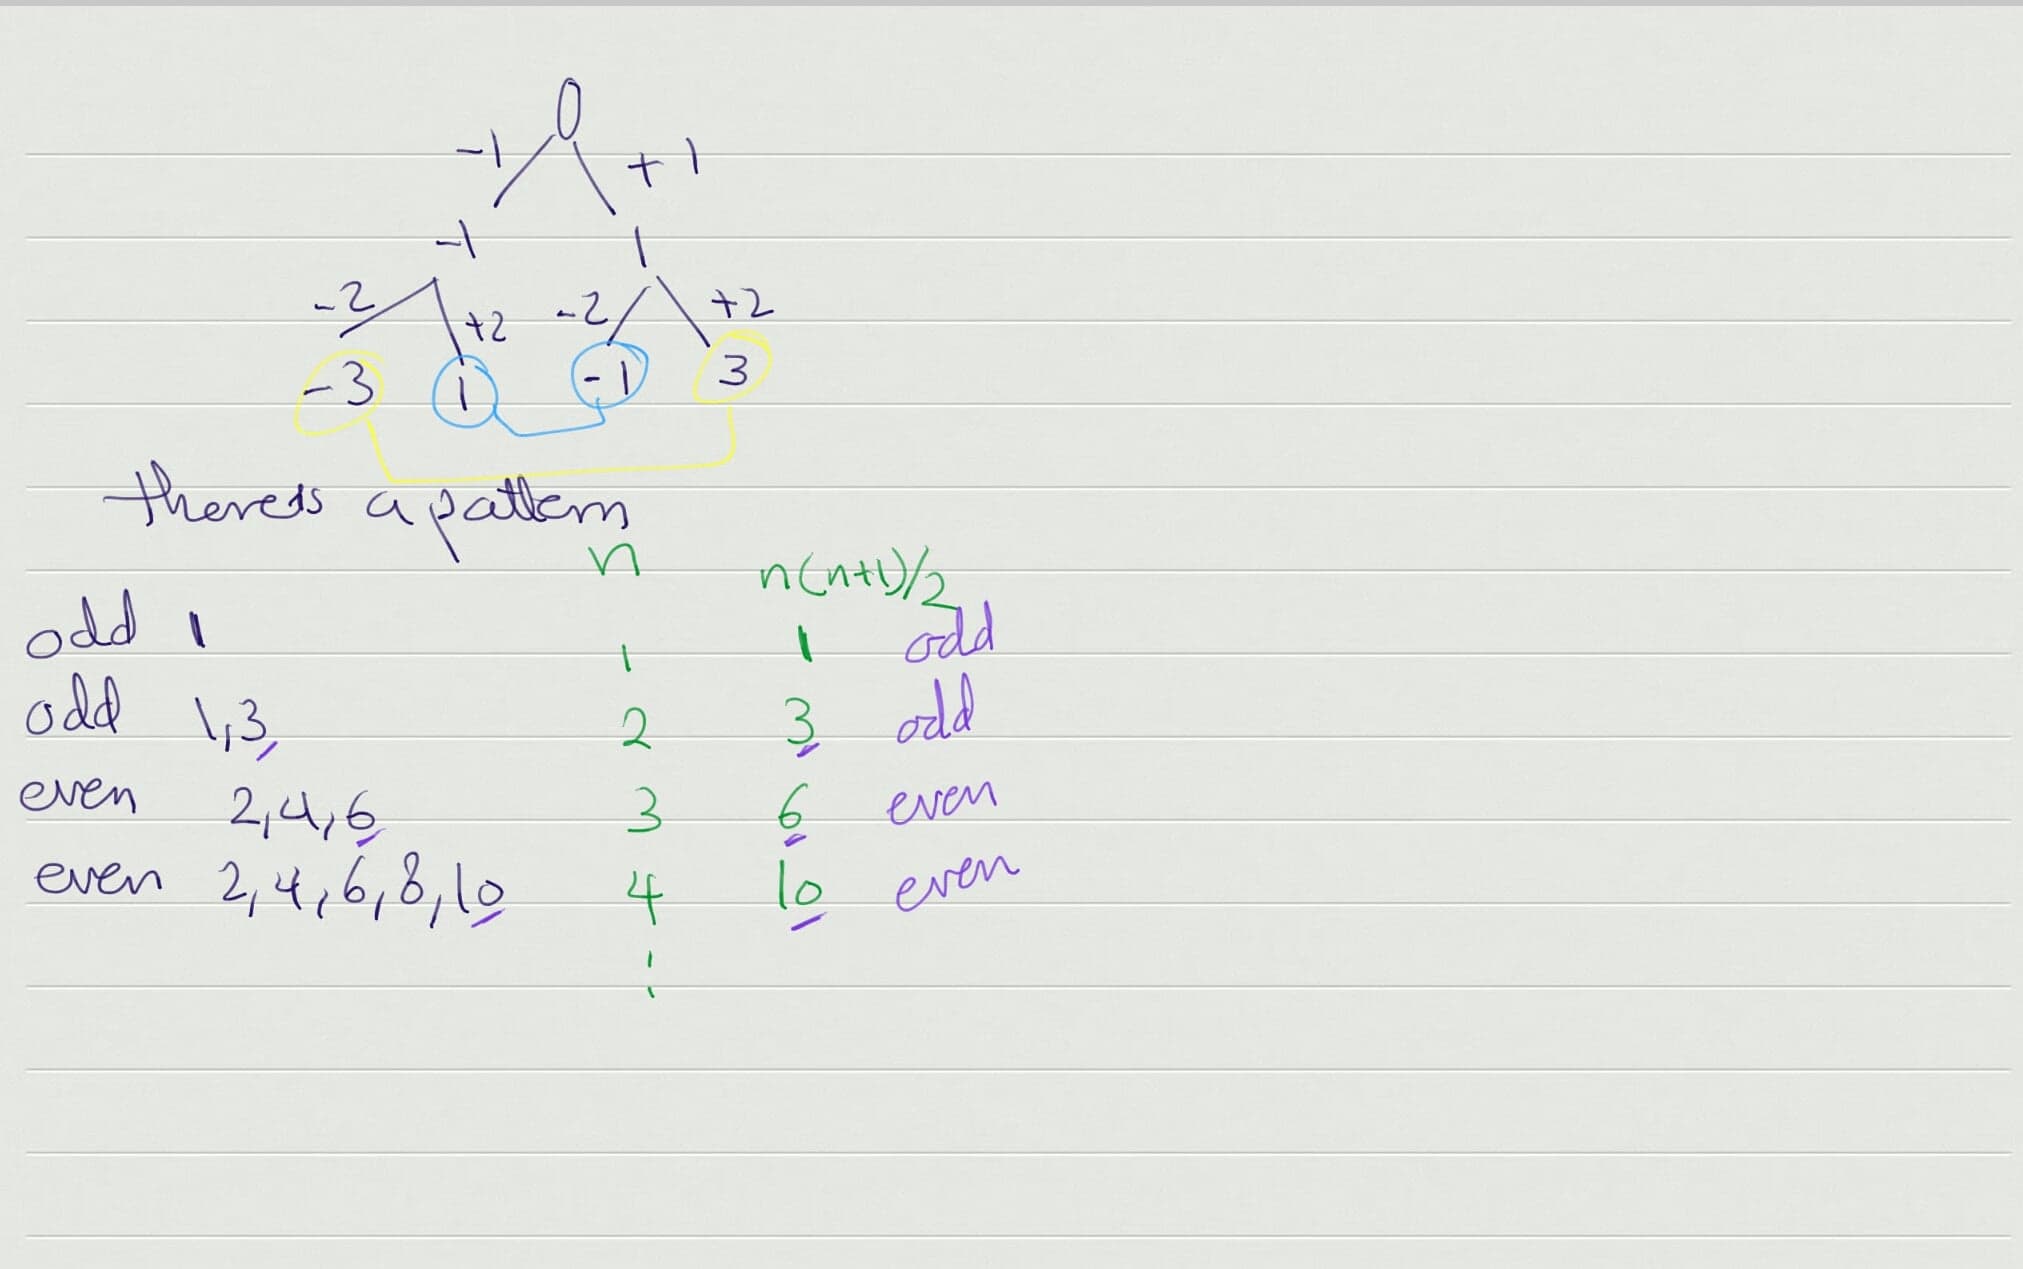 0
-1 +1
-1 1
-2 +2 -2 +2
-3 1 -1 3
there's a pattern
n n(n+1)/2
odd 1 1 1 odd
odd 1,3 2 3 odd
even 2,4,6 3 6 even
even 2,4,6,8,10 4 10 even